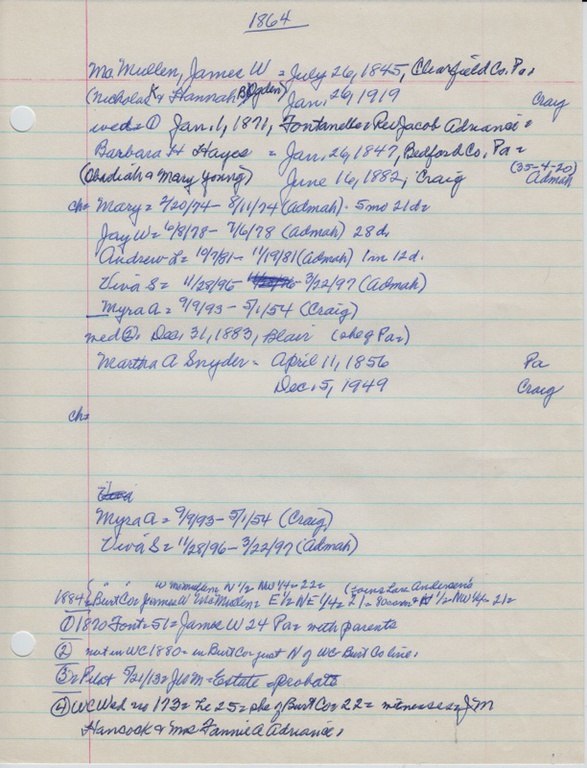 1864
Mc Mullen, James W = July 26, 1845, Clearfield Co. Pa.
(Nicholas K & Hannah B Ogden) Jan. 26, 1919 Craig
wed = ① Jan. 1, 1871, Fontanelle = Rev Jacob Adriance =
Barbara H Hayes = Jan. 26, 1847, Bedford Co, Pa =
(Obadiah & Mary Young) June 16, 1882, Craig (35-4-20) Admah
ch = Mary = 2/20/74 - 8/11/74 (Admah) - 5 mo 21 d =
Jay W = 6/8/78 - 7/6/78 (Admah) 28 d.
Andrew L = 10/7/81 - 11/19/81 (Admah) 1 m 12 d.
Viva S = 11/28/96 - 3/22/97 (Admah)
Myra A = 9/9/93 - 5/1/54 (Craig)
wed ②. Dec. 31, 1883, Blair (she of Pa =)
Martha A Snyder = April 11, 1856 Pa
Dec. 5, 1949 Craig
ch =
Viva
Myra A = 9/9/93 - 5/1/54 (Craig)
Viva S = 11/28/96 - 3/22/97 (Admah)
W McMullen = N 1/2 NW 1/4 = 22 = (joins Lars Andersen's
1884 = Burt Co = James W McMullen = E 1/2 NE 1/4 = 21 = 80 acres + N 1/2 NW 1/4 - 21 =
① 1870 Font = 51 = James W 24 Pa = with parents
② not in WC 1880 = in Burt Co = just N of WC - Burt Co line.
③ = Pilot 5/21/13 = JWM = Estate = probate
④ WC Wed no 173 = he 25 = she of Burt Co = 22 = witnesses = J M
Hancock & Mrs Fannie A Adriance.